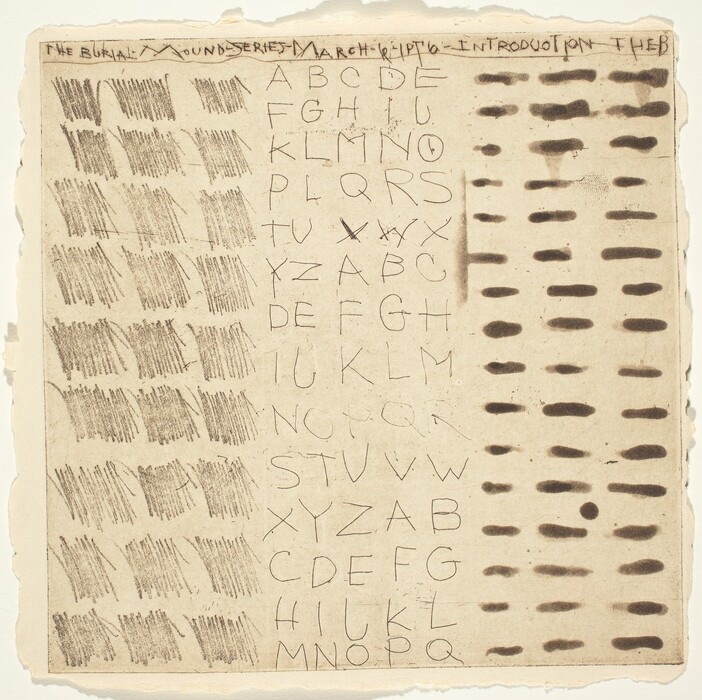 THE BURIAL-MOUND-SERIES-MARCH-6-1976-INTRODUCTION THEB
A B C D E
F G H I J
K L M N O
P L Q R S
T U X W X
Y Z A B C
D E F G H
I J K L M
N O P Q R
S T U V W
X Y Z A B
C D E F G
H I J K L
M N O P Q